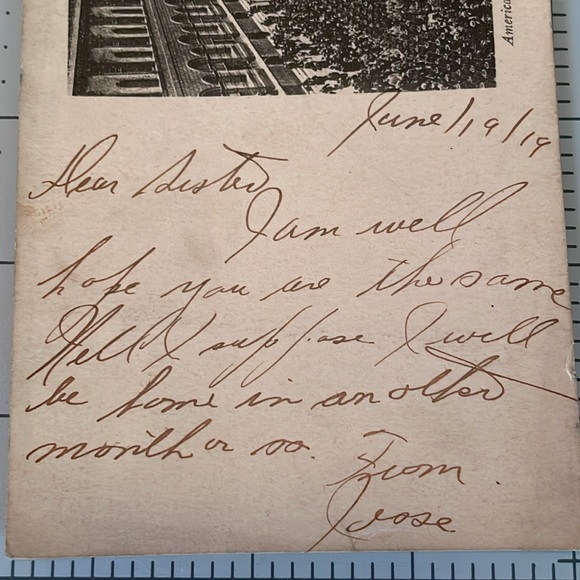 America
June/19/19
Dear Sister
I am well
hope you are the same
Well I suppose I will
be home in another
month or so.
From
Jesse